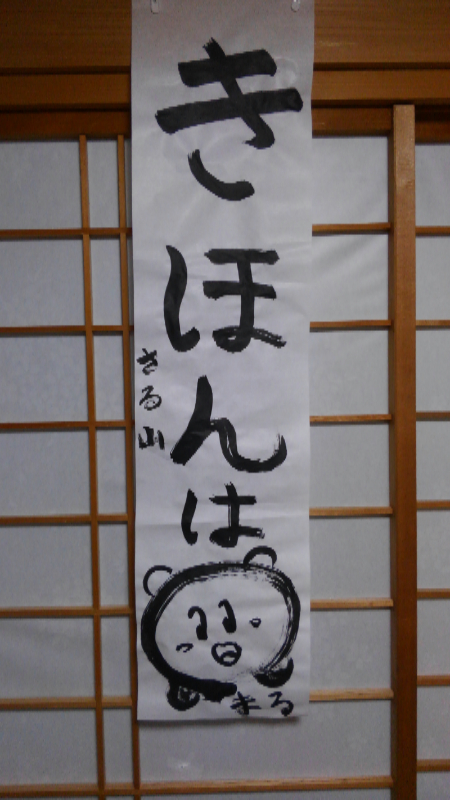 きほんは
まる
さる山